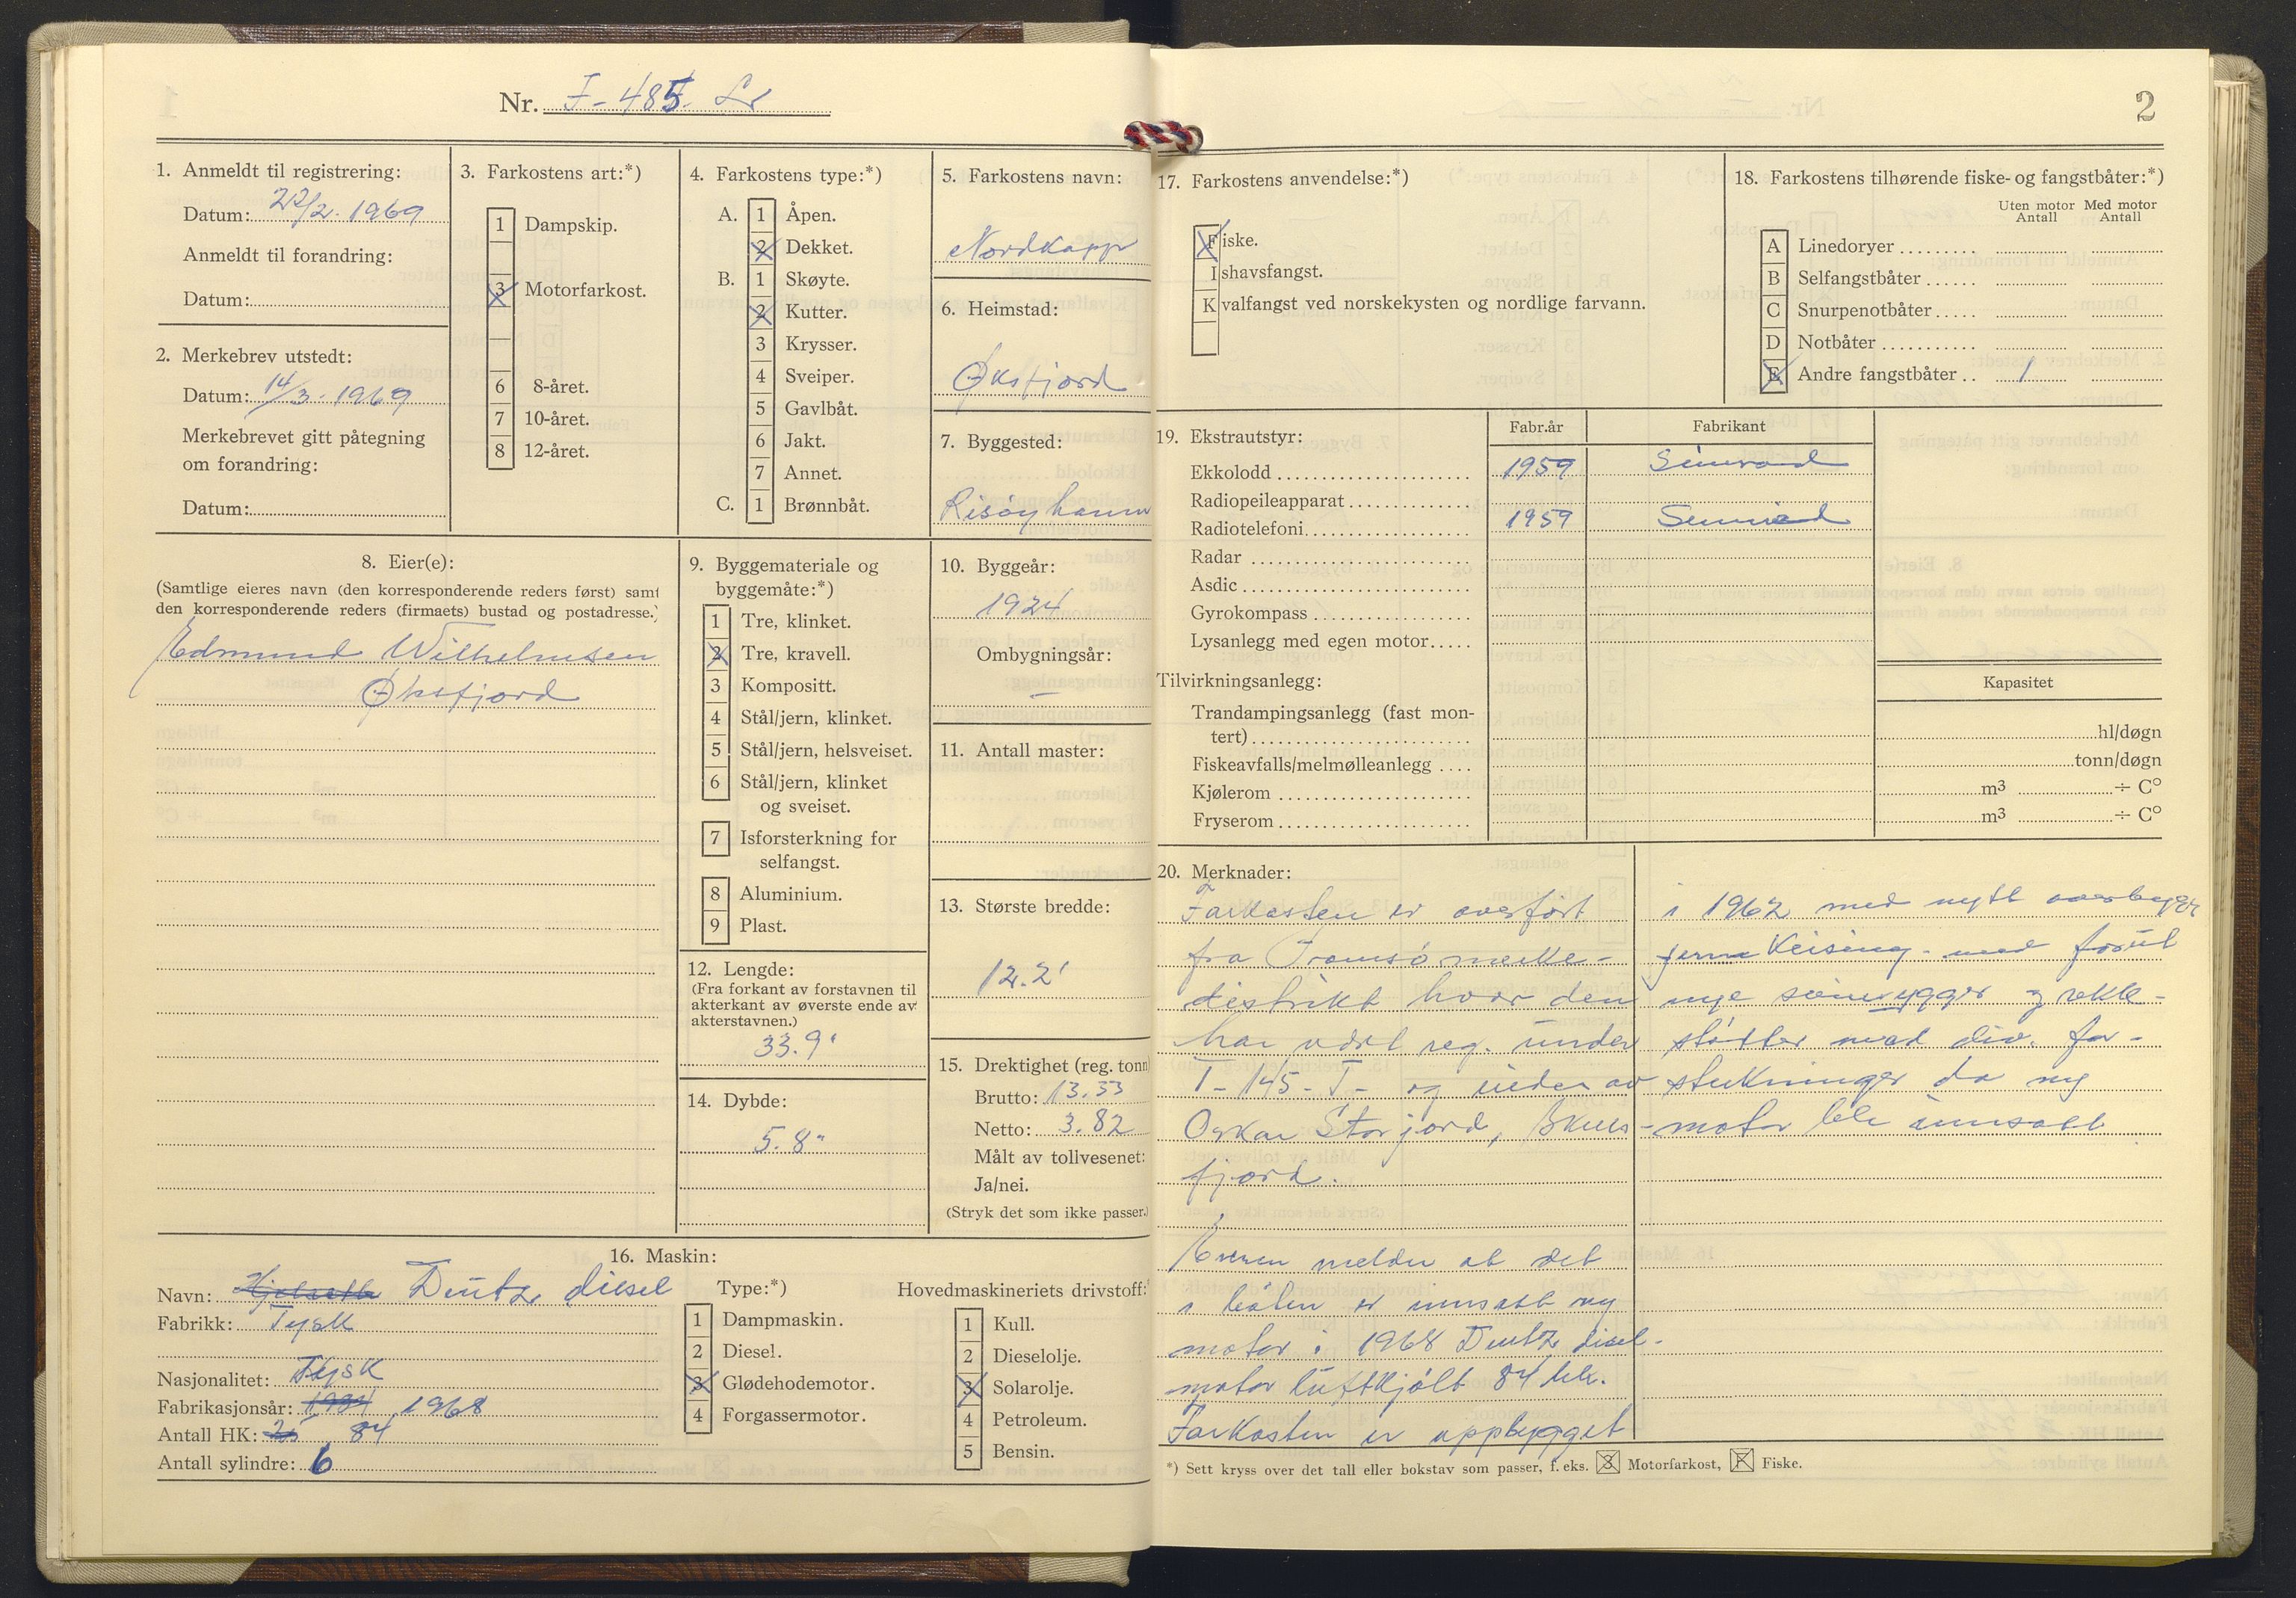 Nr. F-485-Lr
2
1. Anmeldt til registrering:
Datum: 22/2. 1969
Anmeldt til forandring:
Datum:
2. Merkebrev utstedt:
Datum: 14/3. 1969
Merkebrevet gitt påtegning
om forandring:
Datum:
3. Farkostens art:*)
1 Dampskip.
3 Motorfarkost.
6 8-året.
7 10-året.
8 12-året.
4. Farkostens type:*)
A. 1 Åpen.
2 Dekket.
B. 1 Skøyte.
2 Kutter.
3 Krysser.
4 Sveiper.
5 Gavlbåt.
6 Jakt.
7 Annet.
C. 1 Brønnbåt.
5. Farkostens navn:
Nordkapp
6. Heimstad:
Øksfjord
7. Byggested:
Risøyhamn
8. Eier(e):
(Samtlige eieres navn (den korresponderende reders først) samt
den korresponderende reders (firmaets) bustad og postadresse.)
Edmund Wilhelmsen
Øksfjord
9. Byggemateriale og
byggemåte:*)
1 Tre, klinket.
2 Tre, kravell.
3 Kompositt.
4 Stål/jern, klinket.
5 Stål/jern, helsveiset.
6 Stål/jern, klinket
og sveiset.
7 Isforsterkning for
selfangst.
8 Aluminium.
9 Plast.
10. Byggeår:
1924
Ombygningsår:
—
11. Antall master:
12. Lengde:
(Fra forkant av forstavnen til
akterkant av øverste ende av
akterstavnen.)
33.9"
13. Største bredde:
12.2'
14. Dybde:
5.8"
15. Drektighet (reg. tonn
Brutto: 13.33
Netto: 3.82
Målt av tollvesenet:
Ja/nei.
(Stryk det som ikke passer.)
16. Maskin:
Navn: Hjelseth Deutz diesel
Fabrikk: Tysk
Nasjonalitet: Tysk
Fabrikasjonsår: 1968
Antall HK: 25 84
Antall sylindre: 6
Type:*)
1 Dampmaskin.
2 Diesel.
3 Glødehodemotor.
4 Forgassermotor.
Hovedmaskineriets drivstoff:
1 Kull.
2 Dieselolje.
3 Solarolje.
4 Petroleum.
5 Bensin.
17. Farkostens anvendelse:*)
Fiske.
Ishavsfangst.
Kvalfangst ved norskekysten og nordlige farvann.
18. Farkostens tilhørende fiske- og fangstbåter:*)
Uten motor Med motor
Antall Antall
A Linedoryer
B Selfangstbåter
C Snurpenotbåter
D Notbåter
E Andre fangstbåter 1
19. Ekstrautstyr: Fabr.år Fabrikant
Ekkolodd 1959 Simrad
Radiopeileapparat
Radiotelefoni 1959 Simrad
Radar
Asdic
Gyrokompass
Lysanlegg med egen motor
Tilvirkningsanlegg: Kapasitet
Trandampingsanlegg (fast mon-
tert) hl/døgn
Fiskeavfalls/melmølleanlegg tonn/døgn
Kjølerom m³ ÷ C°
Fryserom m³ ÷ C°
20. Merknader:
Farkosten er overført
fra Tromsø merke-
distrikt hvor den
har vært reg. under
T-145-T- og eiden av
Oskar Storjord,
fjord.
Eieren melder at det
i båten er innsatt ny
motor i 1968 Deutz disel-
motor luftkjølt 84 hk.
Farkosten er oppbygget
i 1962 med nytt overbygg
med
nye og rekke-
støtter med div. for-
sterkninger da ny
motor ble innsatt
*) Sett kryss over det tall eller bokstav som passer, f. eks. 3 Motorfarkost, F Fiske.